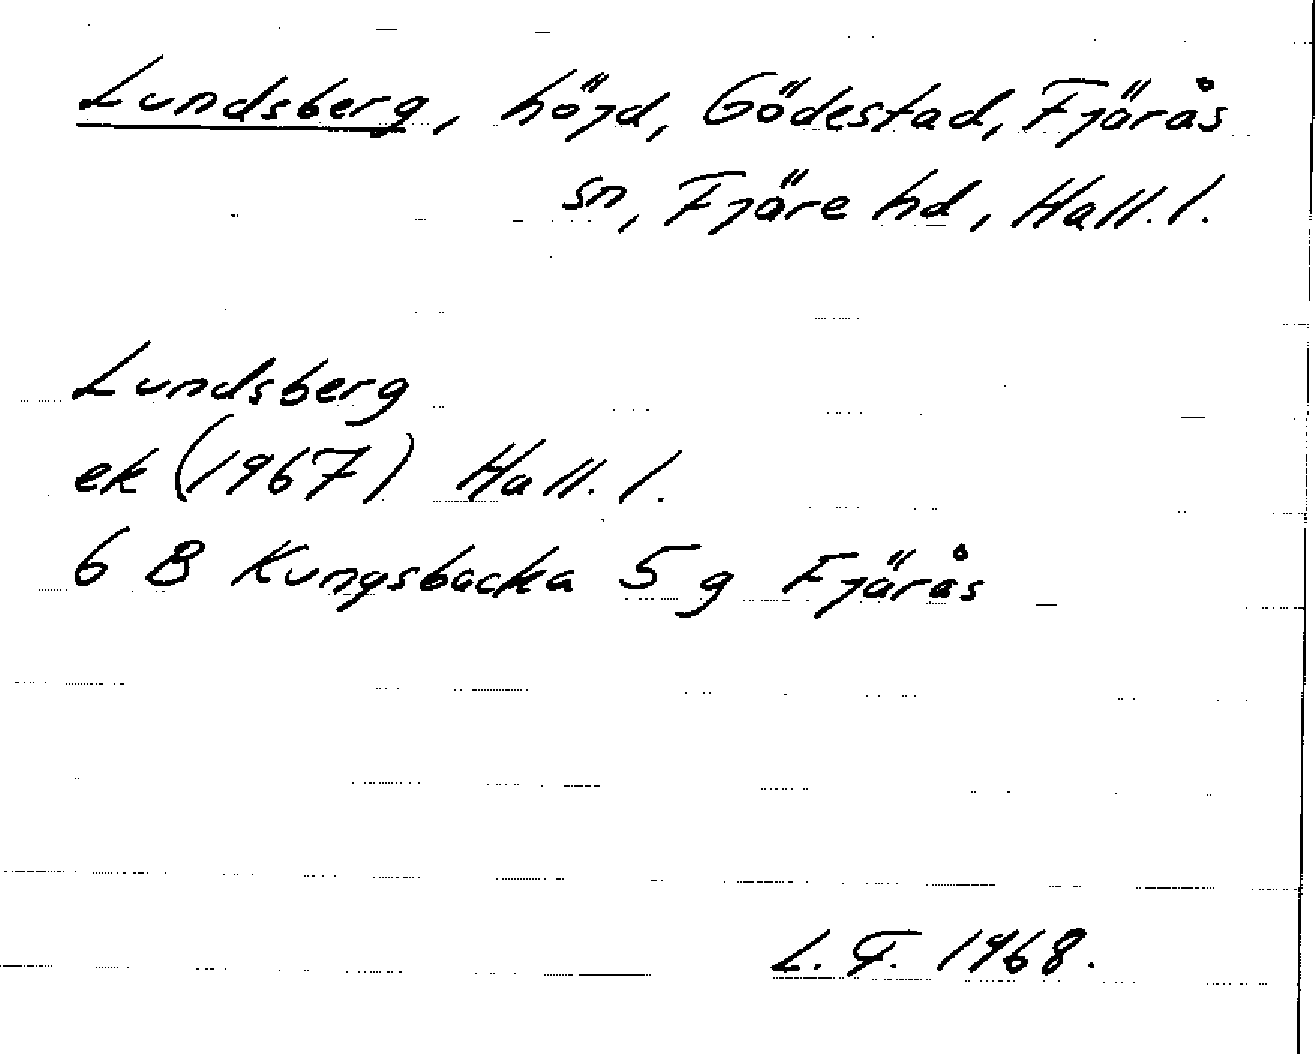 Lundsberg, höjd, Gödestad, Fjärås
sn, Fjäre hd, Hall. l.
Lundsberg
ek (1967) Hall. l.
6 B Kungsbacka 5 g Fjärås
L. F. 1968.